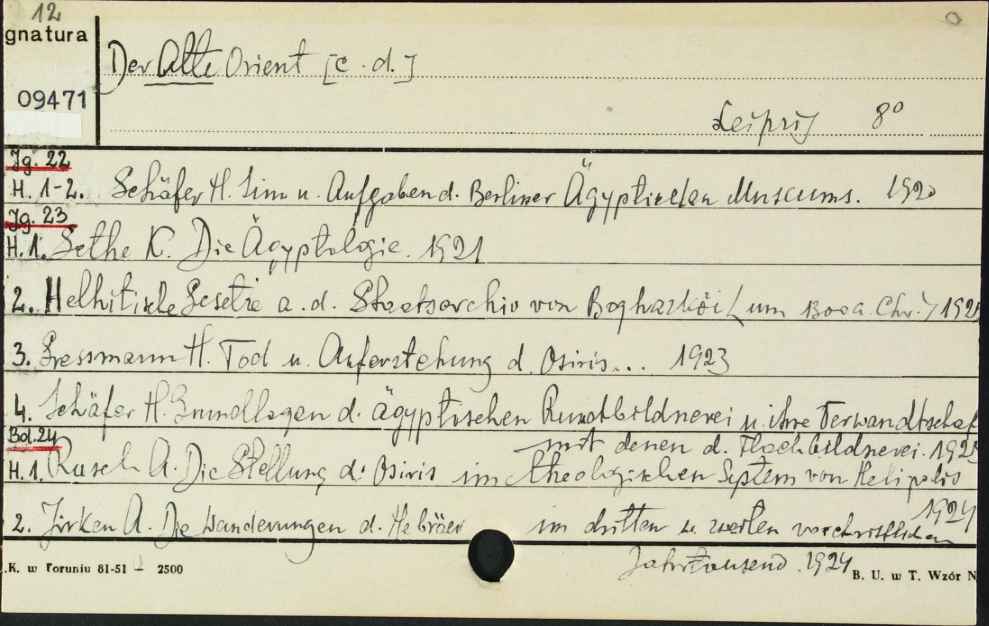 12
gnatura
Der Alte Orient [c.d.]
09471
Leipzig 8°
Jg. 22
H. 1-2. Schäfer H. Sinn u. Aufgaben d. Berliner Ägyptischen Museums. 1920
Jg. 23
H. 1. Sethe K. Die Ägyptologie. 1921
2. Hethitische Gesetze a. d. Staatsarchiv von Boghazköi (um 1300 a. Chr.) 192
3. Gressmann H. Tod u. Auferstehung d. Osiris... 1923
4. Schäfer H. Grundlagen d. ägyptischen Rundbildnerei u. ihre Verwandtschaf
mit denen d. Flachbildnerei. 192
Bd. 24
H. 1. Rusch A. Die Stellung d. Osiris im theologischen System von Heliopolis
1924
2. Jirken A. Die Wanderungen d. Hebräer im dritten u. zweiten vorchristlichen
Jahrtausend. 1924
.K. w Toruniu 81-51 2500
B. U. w T. Wzór N